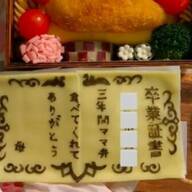 卒業証書
三年間ママ弁
食べてくれて
ありがとう
母